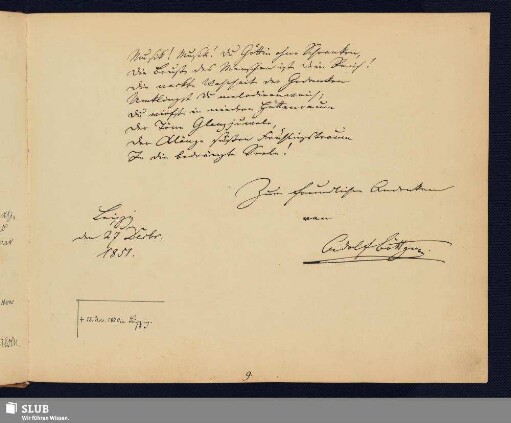 Musik! Musik! Du Göttin ohne Schranken,
Die Brust des Menschen ist dein Reich!
Die nackte Wahrheit des Gedanken
Umklingst Du melodieenreich;
Du wirfst in niedern Hüttenraum
Der Töne Glanzjuwele,
Der Klänge süßen Frühlingstraum
In die bedrängte Seele!
Zum freundlichen Andenken
von
Adolf Böttger.
Leipzig
den 27 Decbr.
1851.
† 1870 in Leipzig.
9
SLUB
Wir führen Wissen.